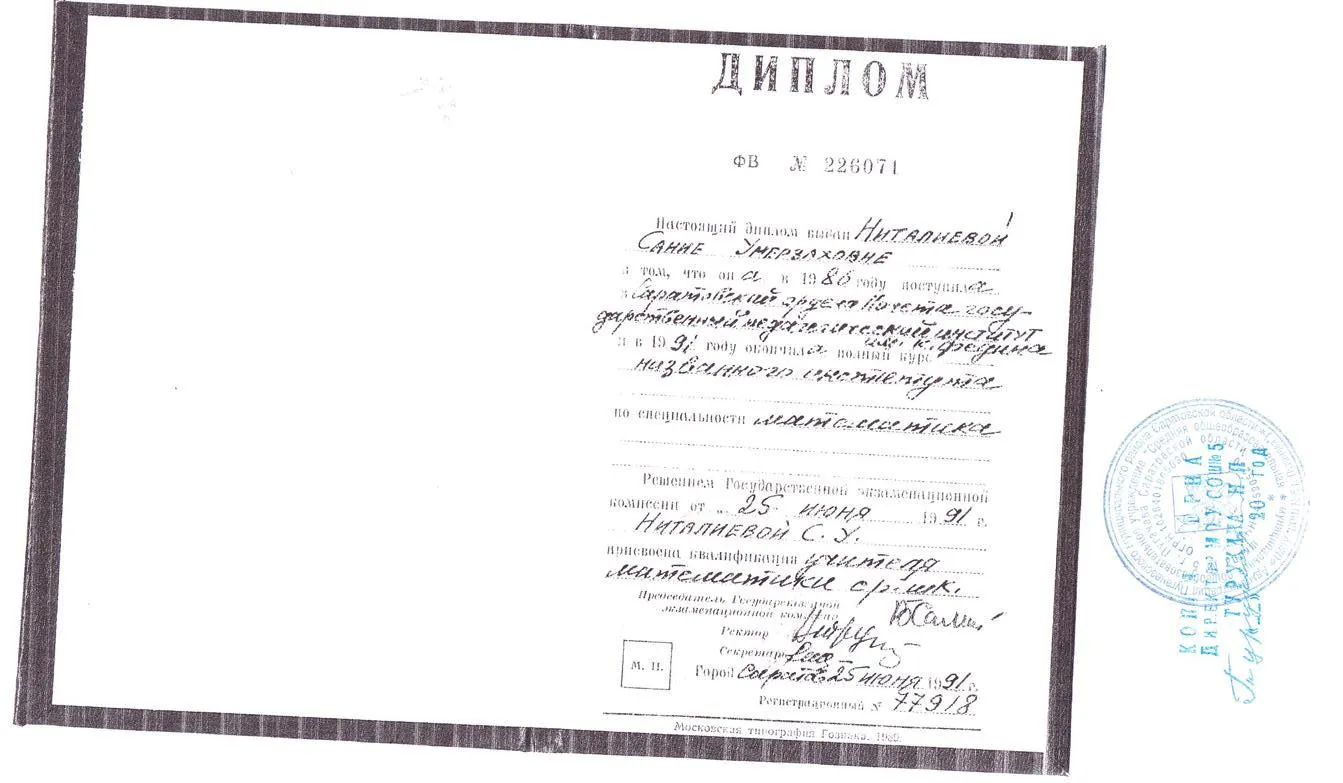 ДИПЛОМ
ФВ № 226071
Настоящий диплом выдан Ниталиевой
Сание Умерзаховне
в том, что она в 1986 году поступила
в Саратовский ордена Почета госу-
дарственный педагогический институт
им. К. Федина
и в 1991 году окончила полный курс
названного института
по специальности математика
Решением Государственной экзаменационной
комиссии от „25 июня 1991 г.
Ниталиевой С. У.
присвоена квалификация учителя
математики ср. шк.
Председатель Государственной
экзаменационной комиссии
Ректор
Секретарь
М. П.
Город Саратов 25 июня 1991 г.
Регистрационный № 77918
Московская типография Гознака. 1989.
КОПИЯ ВЕРНА
ДИРЕКТОР МОУ СОШ № 5
20 ГОД